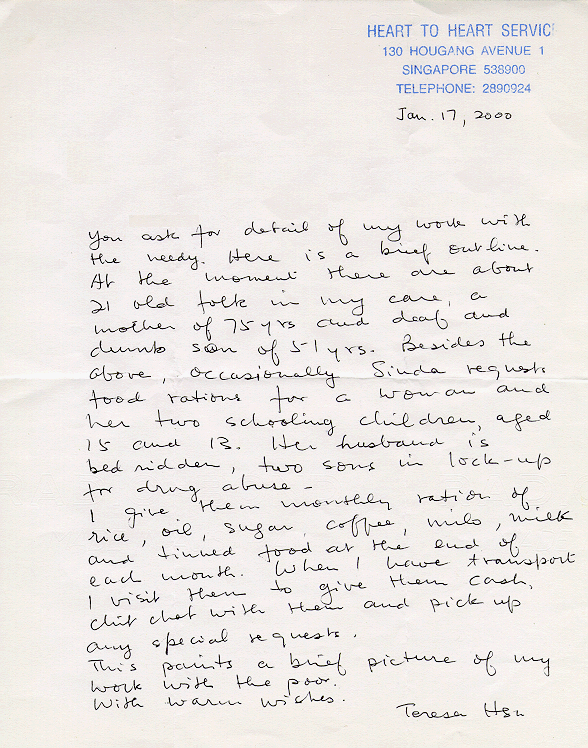 HEART TO HEART SERVIC
130 HOUGANG AVENUE 1
SINGAPORE 538900
TELEPHONE: 2890924
Jan. 17, 2000
You ask for detail of my work with
the needy. Here is a brief outline.
At the moment there are about
21 old folk in my care, a
mother of 75 yrs and deaf and
dumb son of 51 yrs. Besides the
above, occasionally Sinda requests
food rations for a woman and
her two schooling children, aged
15 and 13. Her husband is
bed ridden, two sons in lock-up
for drug abuse -
I give them monthly ration of
rice, oil, sugar, coffee, milo, milk
and tinned food at the end of
each month. When I have transport
I visit them to give them cash,
chit chat with them and pick up
any special requests.
This paints a brief picture of my
work with the poor.
With warm wishes.
Teresa Hsu